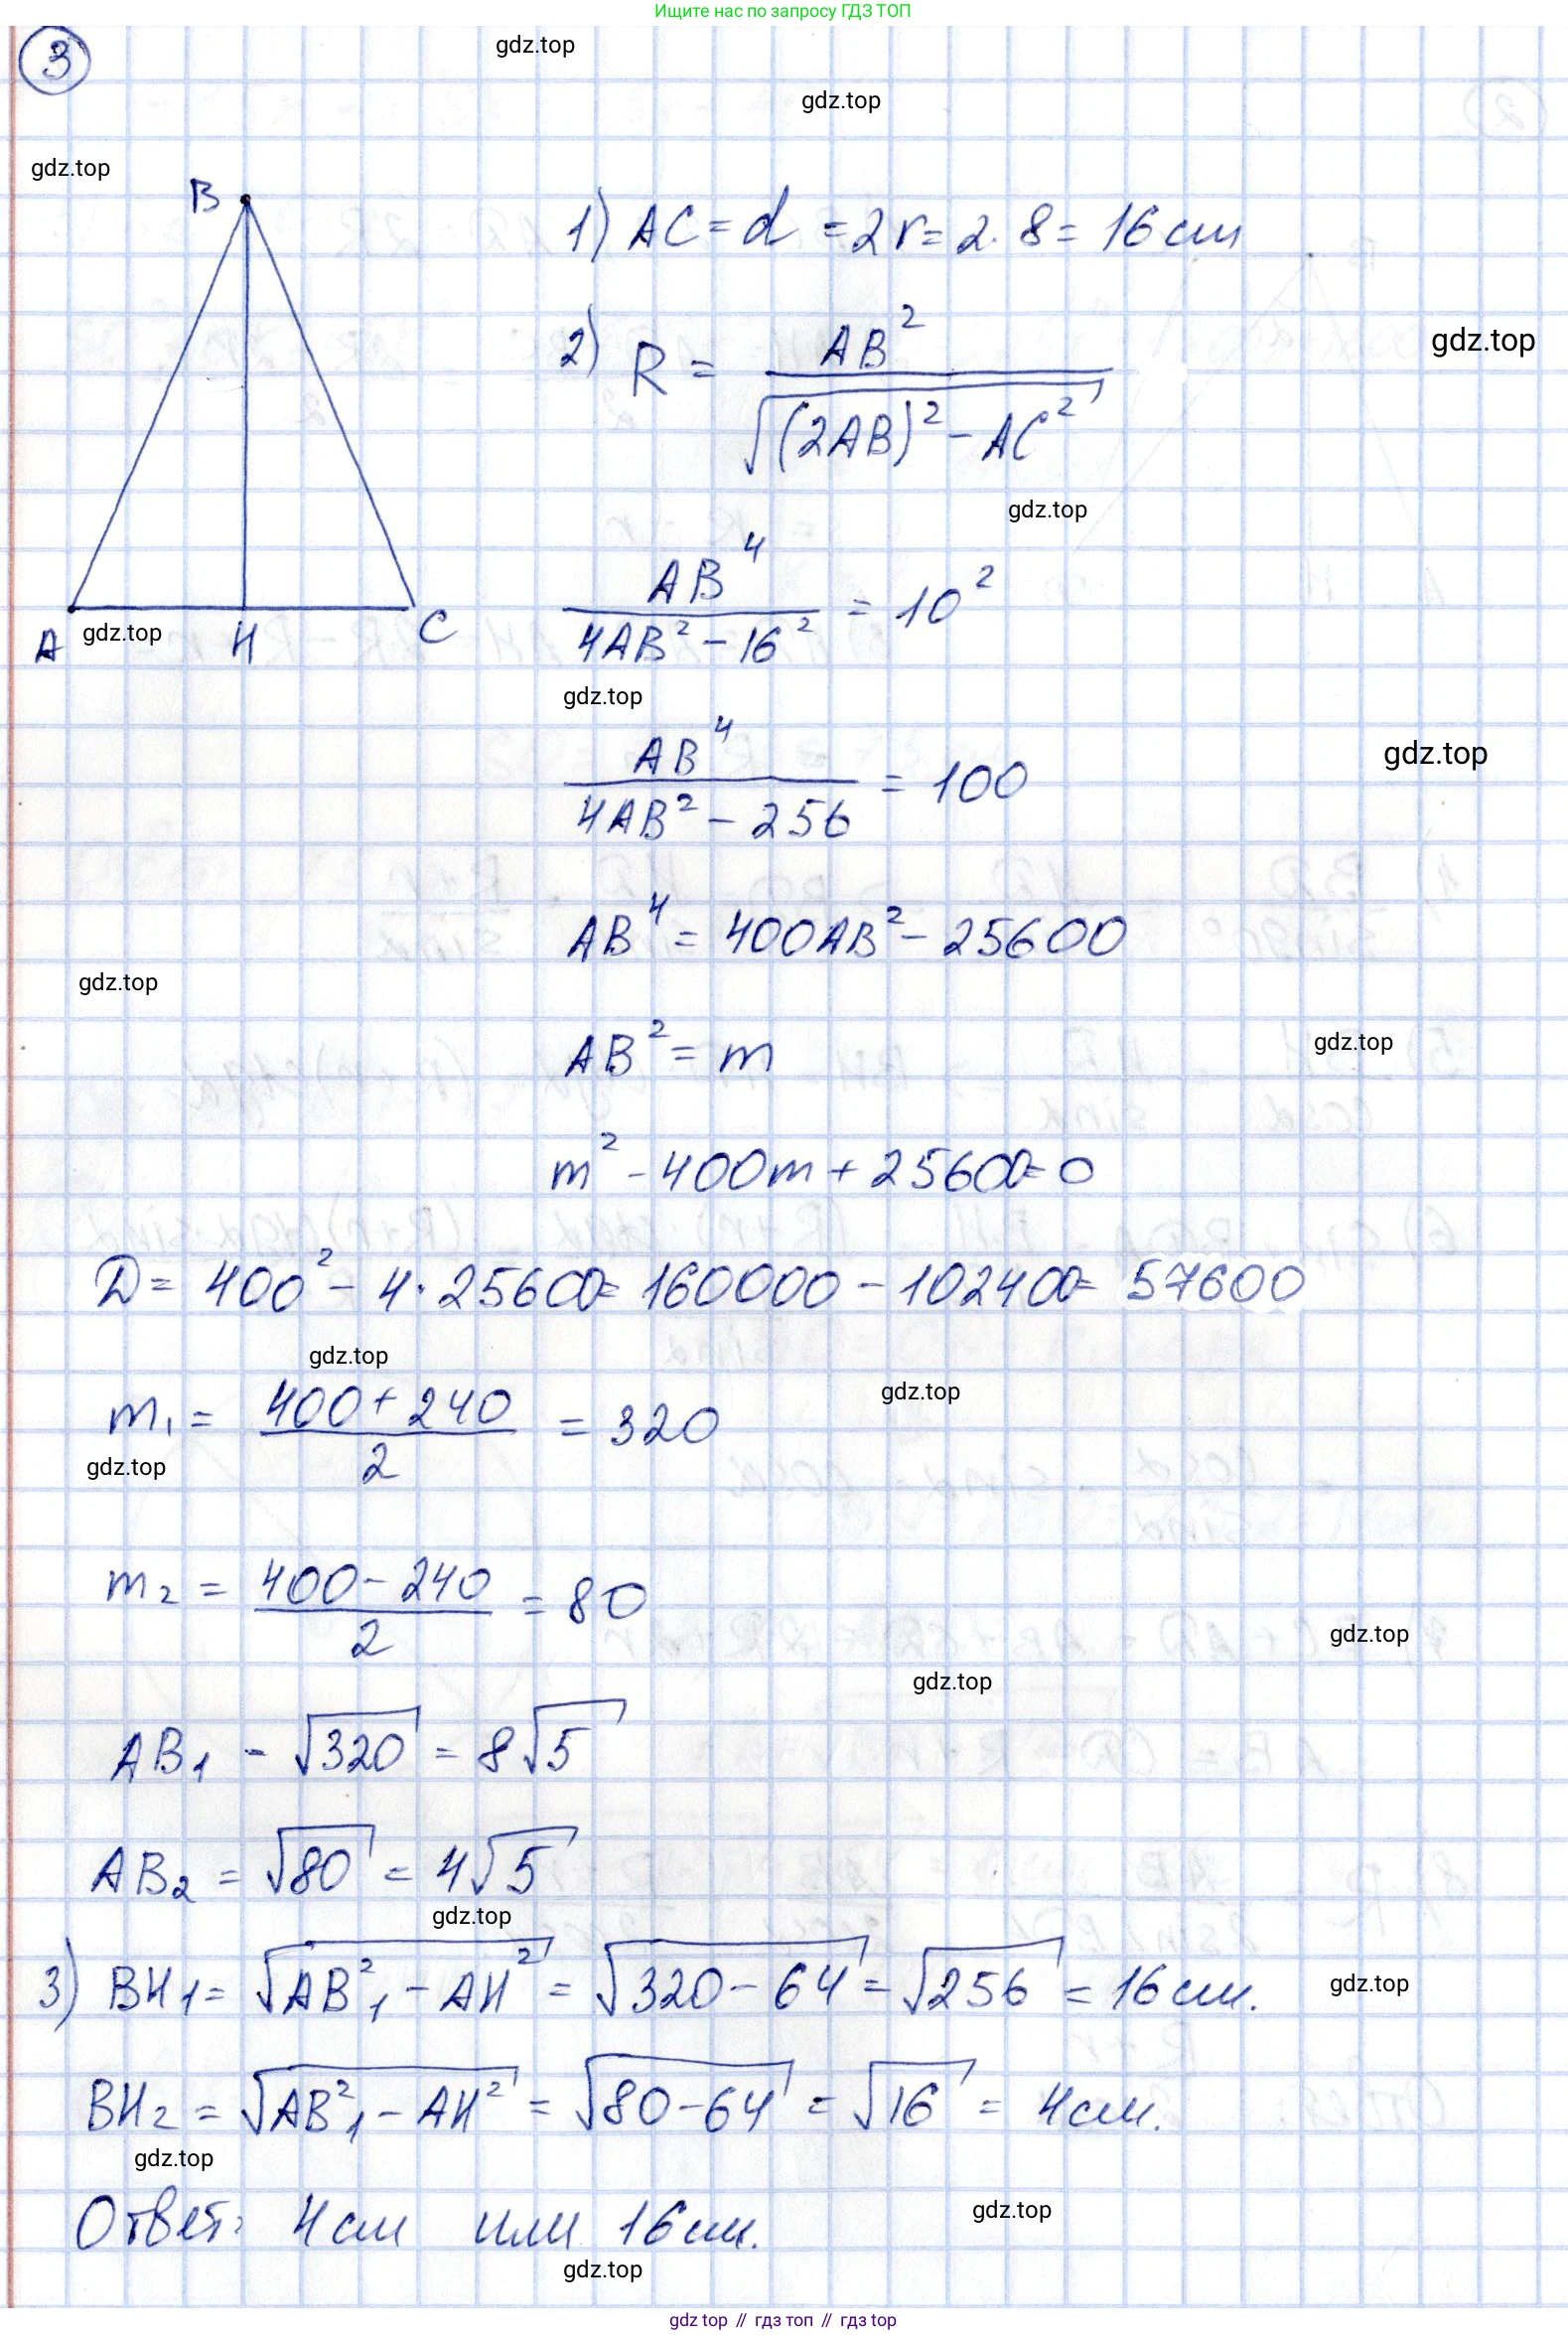 Ищите нас по запросу ГДЗ ТОП
3
gdz.top
gdz.top
gdz.top
B
1) AC = d = 2r = 2 · 8 = 16 см
2) R = AB² / √((2AB)² - AC²)
gdz.top
gdz.top
AB⁴ / (4AB² - 16²) = 10²
A
gdz.top
H
C
gdz.top
AB⁴ / (4AB² - 256) = 100
gdz.top
AB⁴ = 400AB² - 25600
gdz.top
AB² = m
gdz.top
m² - 400m + 25600 = 0
D = 400² - 4 · 25600 = 160000 - 102400 = 57600
gdz.top
gdz.top
m₁ = (400 + 240) / 2 = 320
gdz.top
m₂ = (400 - 240) / 2 = 80
gdz.top
gdz.top
AB₁ - √320 = 8√5
AB₂ = √80 = 4√5
gdz.top
3) BH₁ = √(AB₁² - AH²) = √(320 - 64) = √256 = 16 см.
gdz.top
BH₂ = √(AB₁² - AH²) = √(80 - 64) = √16 = 4 см.
gdz.top
Ответ: 4 см или 16 см.
gdz.top
gdz.top
gdz top // гдз топ // гдз top